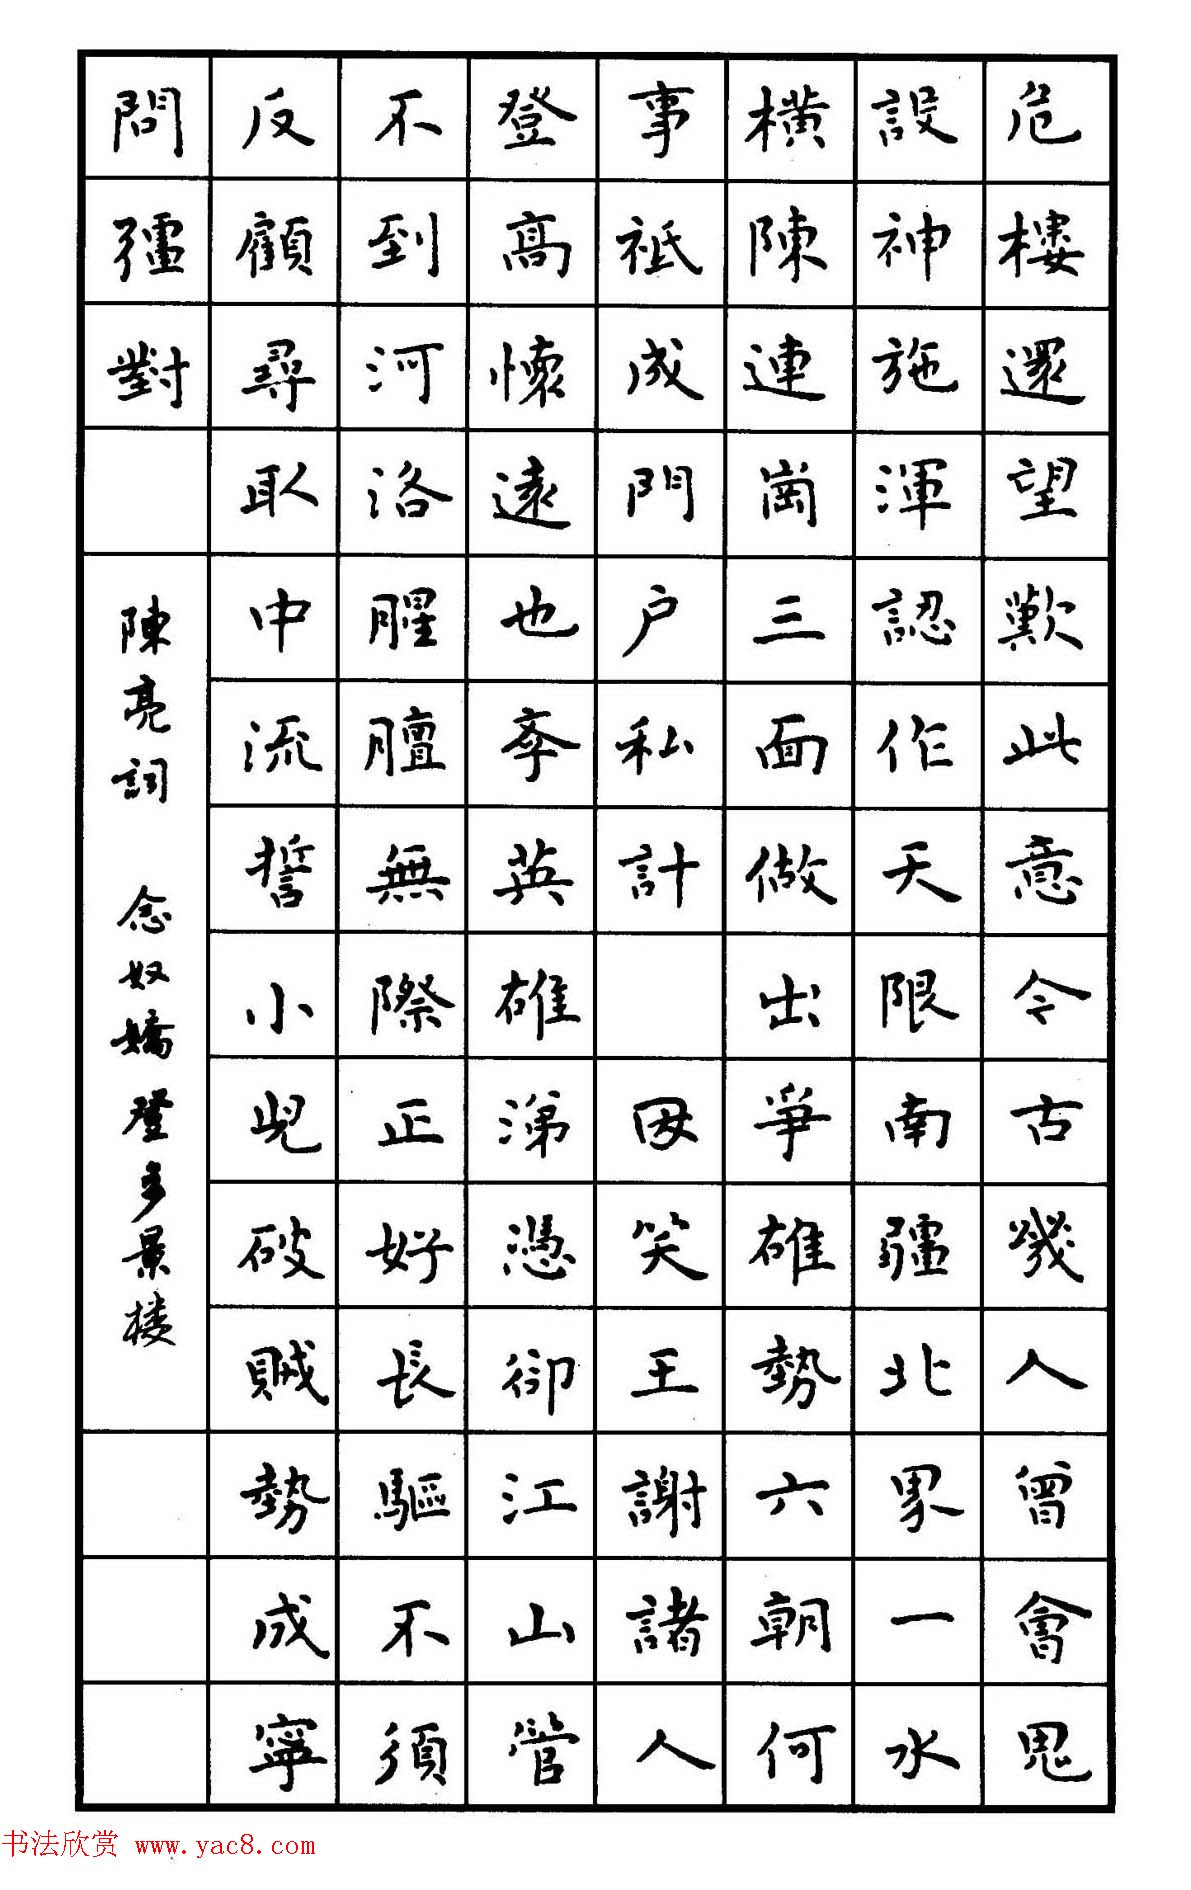 危樓還望歎此意令古幾人曾會鬼
設神施渾認作天限南疆北界一水
橫陳連崗三面做出爭雄勢六朝何
事祇成門户私計 因笑王謝諸人
登高懷遠也斈英雄涕憑卻江山管
不到河洛腥膻無際正好長驅不須
反顧尋取中流誓小兒破賊勢成寧
問彊對
陳亮詞 念奴嬌登多景楼
书法欣赏 www.yac8.com